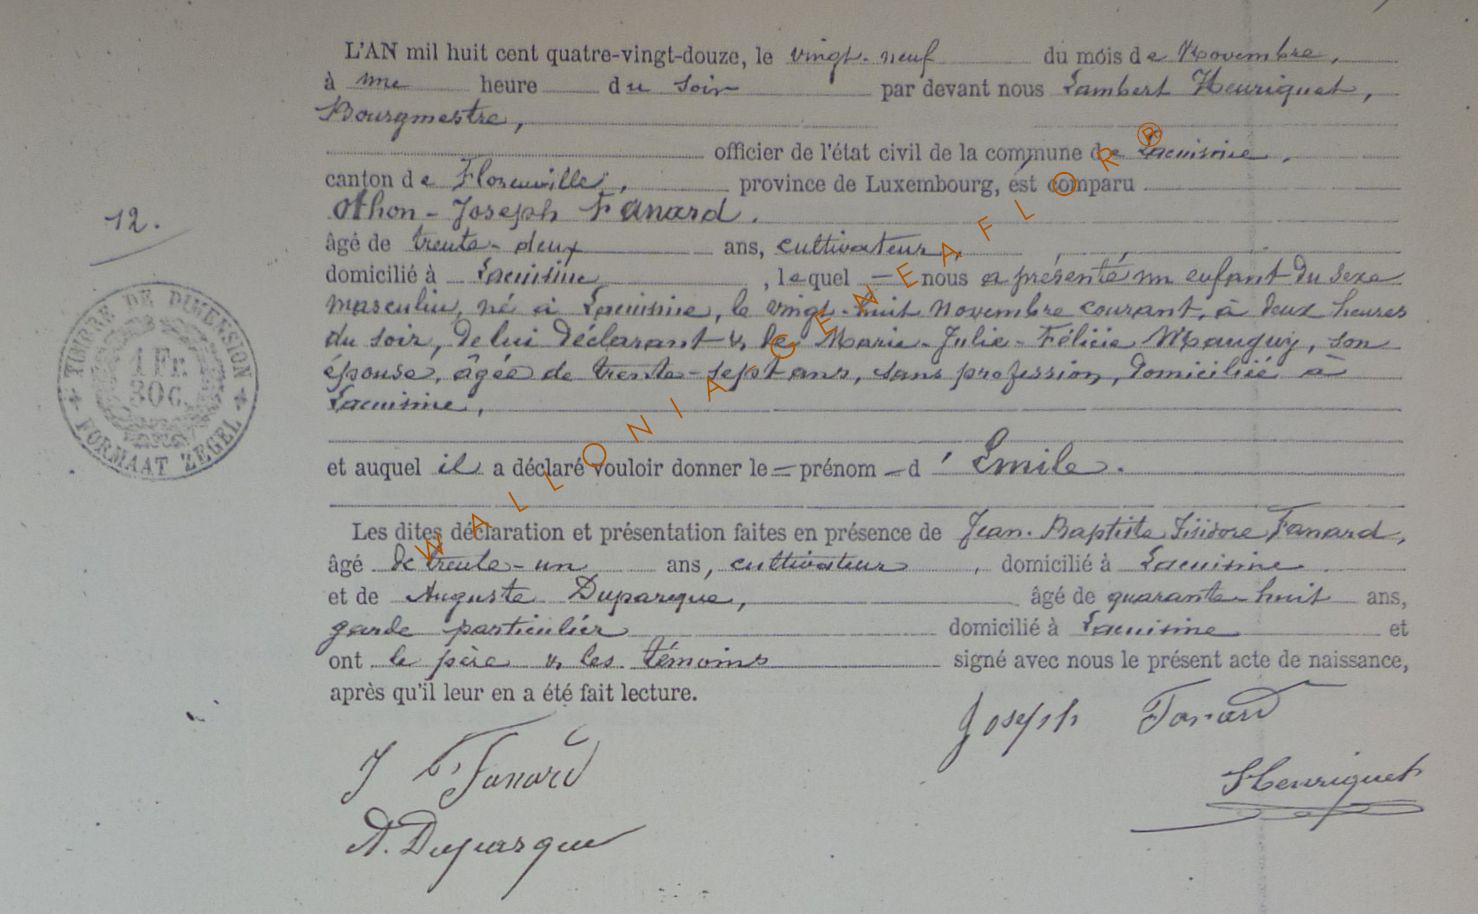 L'AN mil huit cent quatre-vingt-douze, le vingt-neuf du mois de Novembre,
à une heure du soir par devant nous Lambert Henriquet,
Bourgmestre,
officier de l'état civil de la commune de Lacuisine,
canton de Florenville, province de Luxembourg, est comparu
Othon-Joseph Fanard,
12.
âgé de trente-deux ans, cultivateur,
domicilié à Lacuisine, lequel nous a présenté un enfant du sexe
masculin, né à Lacuisine, le vingt-huit novembre courant, à deux heures
du soir, de lui déclarant & de Marie-Julie-Félicie Mauguy, son
épouse, âgée de trente-sept ans, sans profession, domiciliée à
Lacuisine,
TIMBRE DE DIMENSION
1 Fr.
30 C.
FORMAAT ZEGEL
et auquel il a déclaré vouloir donner le prénom d'Emile.
Les dites déclaration et présentation faites en présence de Jean-Baptiste Isidore Fanard,
âgé de trente-un ans, cultivateur, domicilié à Lacuisine
et de Auguste Duparque, âgé de quarante-huit ans,
garde particulier domicilié à Lacuisine et
ont le père & les témoins signé avec nous le présent acte de naissance,
après qu'il leur en a été fait lecture.
Joseph Fanard
J B Fanard
Henriquet
A. Duparque
WALLONIA-GENEAFLOR®